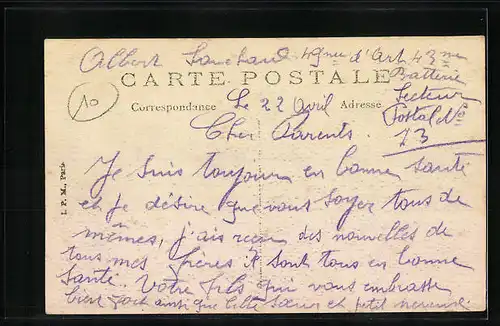 Albert 49me d'Art 43me
Batterie
CARTE POSTALE
Secteur
Correspondance Le 22 Avril Adresse
Postal No
10
Cher Parents. 13
Je suis toujour en bonne santé
et je désire que vous soyer tous de
mêmes, j'ais reçu des nouvelles de
tous mes frères il sont tous en bonne
santé. Votre fils qui vous embrasse
bien fort ainsi que belle sœur et petit
I. P. M., Paris